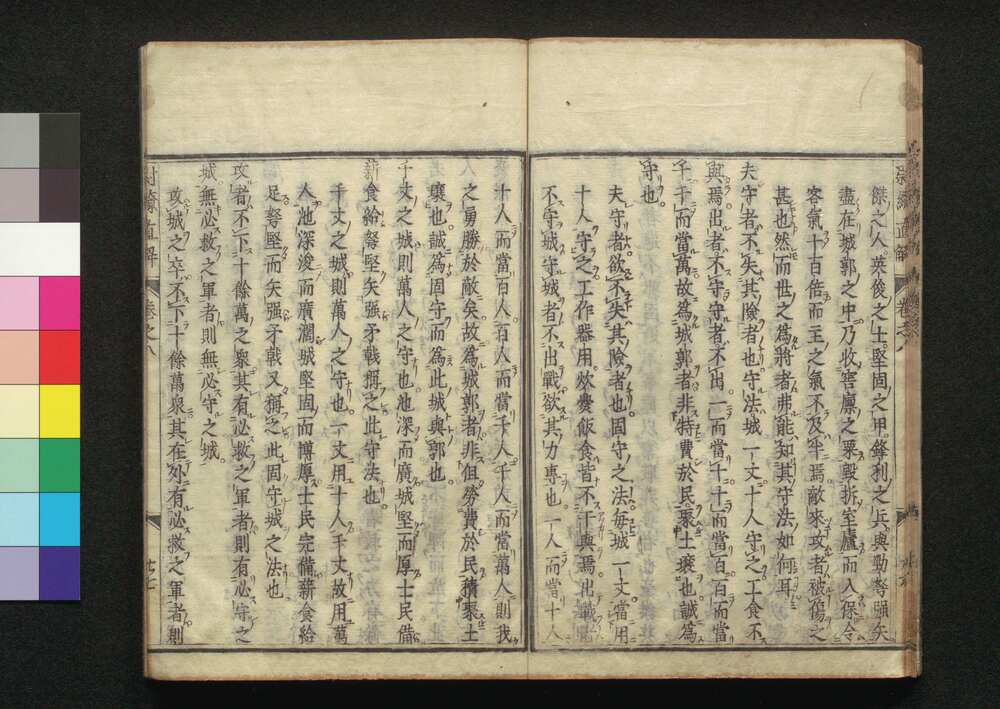 傑之人英俊之士堅固之甲鋒利之兵與勁弩彊矢
盡在城郭之中乃收窖廩之粟毀拆室廬而入保令
客氣十百倍而主之氣不及半焉敵來攻者被傷之
甚也然而世之為將者弗能知其守法如何耳
夫守者不失其險者也守法城一丈十人守之工食不
與焉出者不守守者不出一而當十十而當百百而當
千千而當萬故為城郭者非特費於民聚土壤也誠為
守也
夫守者欲不失其險者也固守之法每城一丈當用
十人守之工作器用炊爨飯食皆不干與焉出戰者
不守城守城者不出戰欲其力專也一人而當十人
十人而當百人百人而當千人千人而當萬人則我
之勇勝於敵矣故為城郭者非但勞費於民積聚土
壤也誠為固守而為此城與郭也
千丈之城則萬人之守也池深而廣城堅而厚士民備
薪食給弩堅矢强矛戟稱之此守法也
千丈之城則萬人之守也一丈用十人千丈故用萬
人池深浚而廣濶城堅固而博厚士民完備薪食給
足弩堅而矢强矛戟又稱之此固守城之法也
攻者不下十餘萬之衆其有必救之軍者則有必守之
城無必救之軍者則無必守之城
攻城之卒不下十餘萬衆其在外有必救之軍者則
尉繚直解
卷之八
廿七